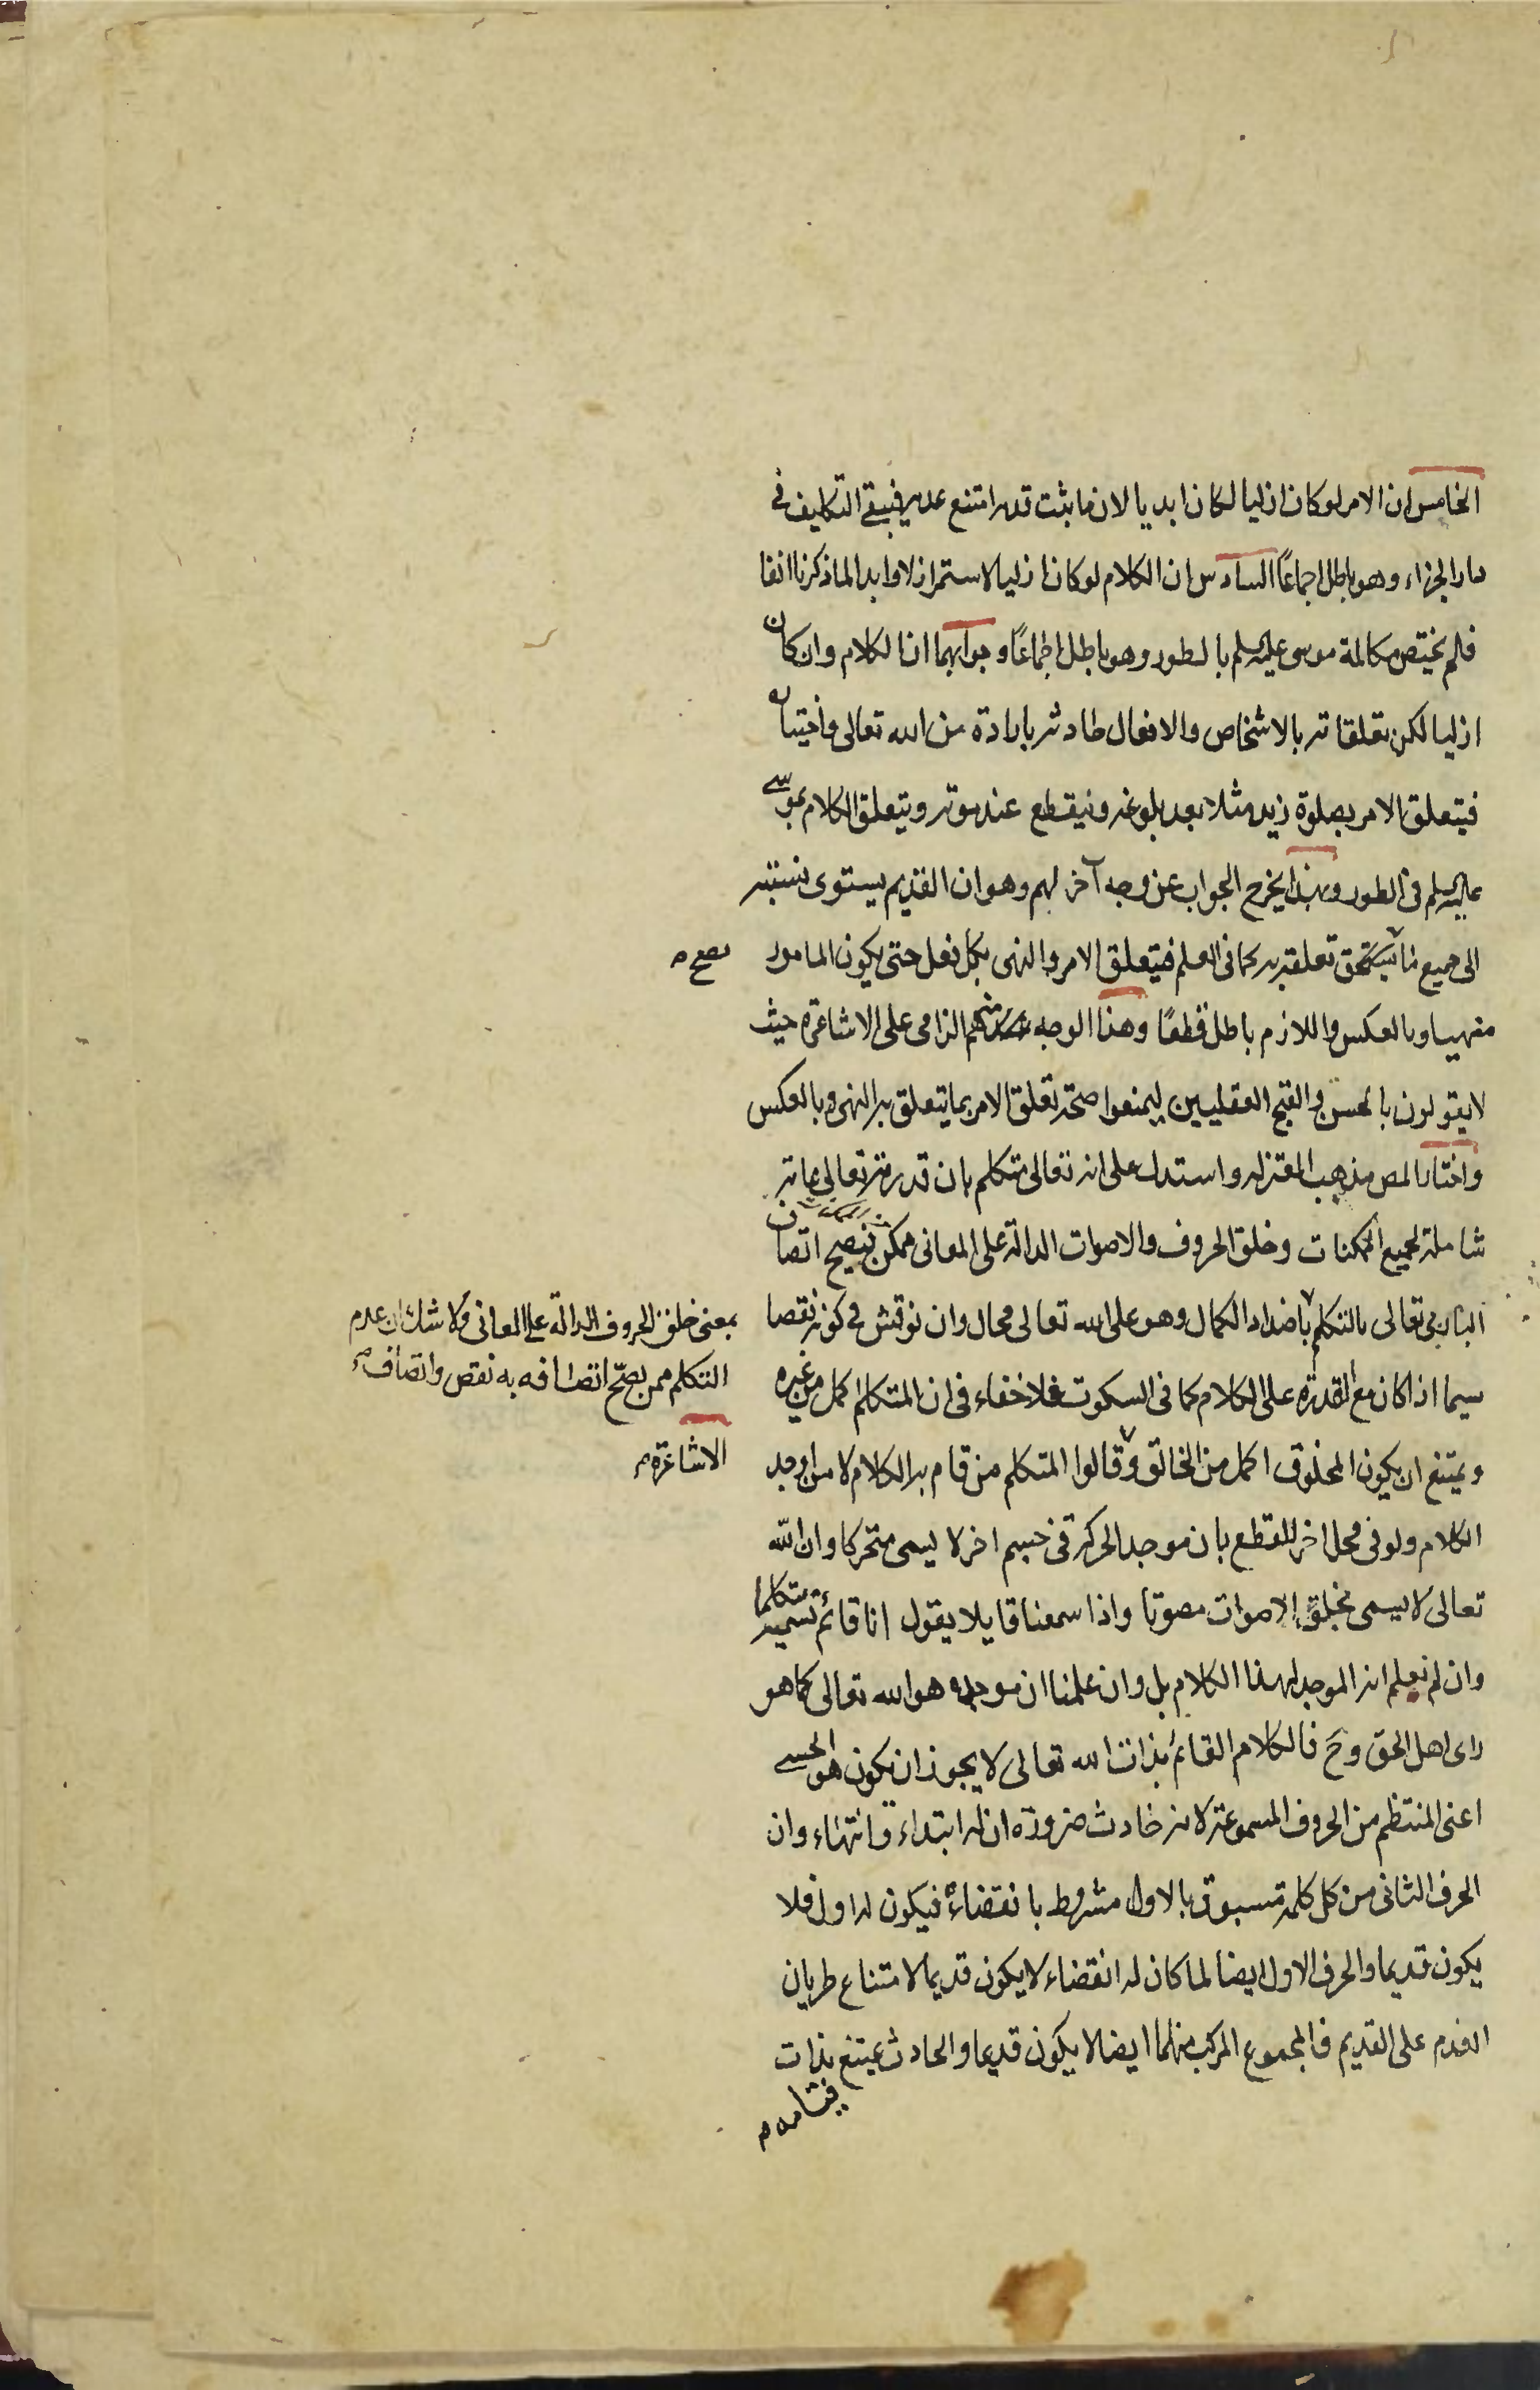 الخامس ان الامر لو كان ازليا لكان ابديا لان ما ثبت قدمه امتنع عدمه فيبقى التكليف في
دار الجزاء وهو باطل اجماعًا السادس ان الكلام لو كان ازليا لاستمر ازلا وابدا لما ذكرنا انفا
فلم يختص مكالمة موسى عليه السلم بالطور وهو باطل اجماعًا وجوابهما ان الكلام وان كان
ازليا لكن تعلقاته بالاشخاص والافعال حادثه بارادة من الله تعالى واختيار
فيتعلق الامر بصلوة زيد مثلا بعد بلوغه وينقطع عند موته ويتعلق الكلام بموسى
عليه السلم في الطور وبهذا يخرج الجواب عن وجه آخر لهم وهو ان القديم يستوى نسبته
الى جميع ما تعلقه به كما في العلم فيتعلق الامر والنهى بكل فعل حتى يكون المامور
يصح م
منهيا وبالعكس واللازم باطل قطعًا وهذا الوجه منهم الزامى على الاشاعره حيث
لا يقولون بالحسن والقبح العقليين ليمنعوا صحة تعلق الامر بما يتعلق به النهى وبالعكس
واختار المص مذهب المعتزله واستدل على انه تعالى متكلم بان قدرته تعالى عامة
شاملة لجميع الممكنات وخلق الحروف والاصوات الدالة على المعانى ممكن فيصح اتصاف
البارى تعالى بالتكلم باضداد الكمال وهو على الله تعالى محال وان نوقش في كونه نقصا
بمعنى خلق الحروف الدالّة على المعانى ولا شك ان عدم
التكلم ممن يصحّ اتصافه به نقص واتصاف م
سيما اذا كان مع القدرة على الكلام كما في السكوت فلا خفاء في ان المتكلم اكمل من غيره
ويمتنع ان يكون المخلوق اكمل من الخالق وقالوا المتكلم من قام به الكلام لا من اوجد
الاشاعرة م
الكلام ولو في محل اخر للقطع بان موجد الحركة في جسم اخر لا يسمى متحركا وان الله
تعالى لا يسمى بخلق الاصوات مصوتا واذا سمعنا قايلا يقول انا قائم نسميه متكلما
وان لم نعلم انه الموجد لهذا الكلام بل وان علمنا ان موجده هو الله تعالى كما هو
راى اهل الحق وح فالكلام القائم بذات الله تعالى لا يجوز ان يكون هو الحسى
اعنى المنتظم من الحروف المسموعة لانه حادث ضرورة ان له ابتداء وانتهاء وان
الحرف الثانى من كل كلمة مسبوق بالاول مشروط بانقضائه فيكون له اول فلا
يكون قديما والحرف الاول ايضا لما كان له انقضاء لا يكون قديما لامتناع طريان
العدم على القديم فالمجموع المركب منهما ايضا لا يكون قديما والحادث يمتنع بذات
قيامه م